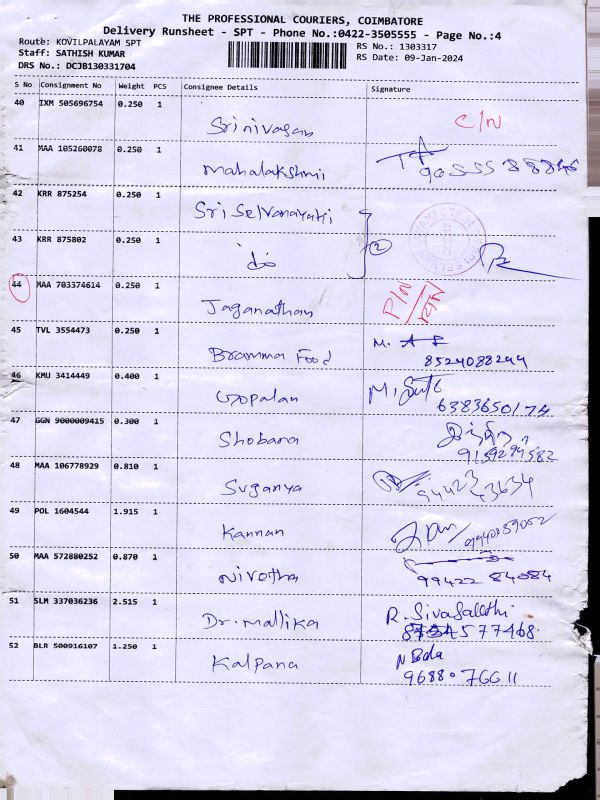 THE PROFESSIONAL COURIERS, COIMBATORE
Delivery Runsheet - SPT - Phone No.:0422-3505555 - Page No.:4
Route: KOVILPALAYAM SPT RS No.: 1303317
Staff: SATHISH KUMAR RS Date: 09-Jan-2024
DRS No.: DCJB130331704
S No Consignment No Weight PCS Consignee Details Signature
40 IXM 505696754 0.250 1
Srinivasan C/N
41 MAA 105260078 0.250 1
Mahalakshmi
42 KRR 875254 0.250 1
Sri Selvanayaki
43 KRR 875802 0.250 1 2
do
44 MAA 703374614 0.250 1
Jaganathan P/N
45 TVL 3554473 0.250 1
Bramma Food 8524088244
46 KMU 3414449 0.400 1
Gopalan 6383650174
47 GGN 9000009415 0.300 1
Shobana 9159294582
48 MAA 106778929 0.810 1
Suganya 94423 43634
49 POL 1604544 1.915 1
Kannan
50 MAA 572880252 0.870 1
Nivetha 99422 84084
51 SLM 337036236 2.515 1
Dr.Mallika R. Sivasakthi
577468
52 BLR 500916107 1.250 1
Kalpana 96880 76611